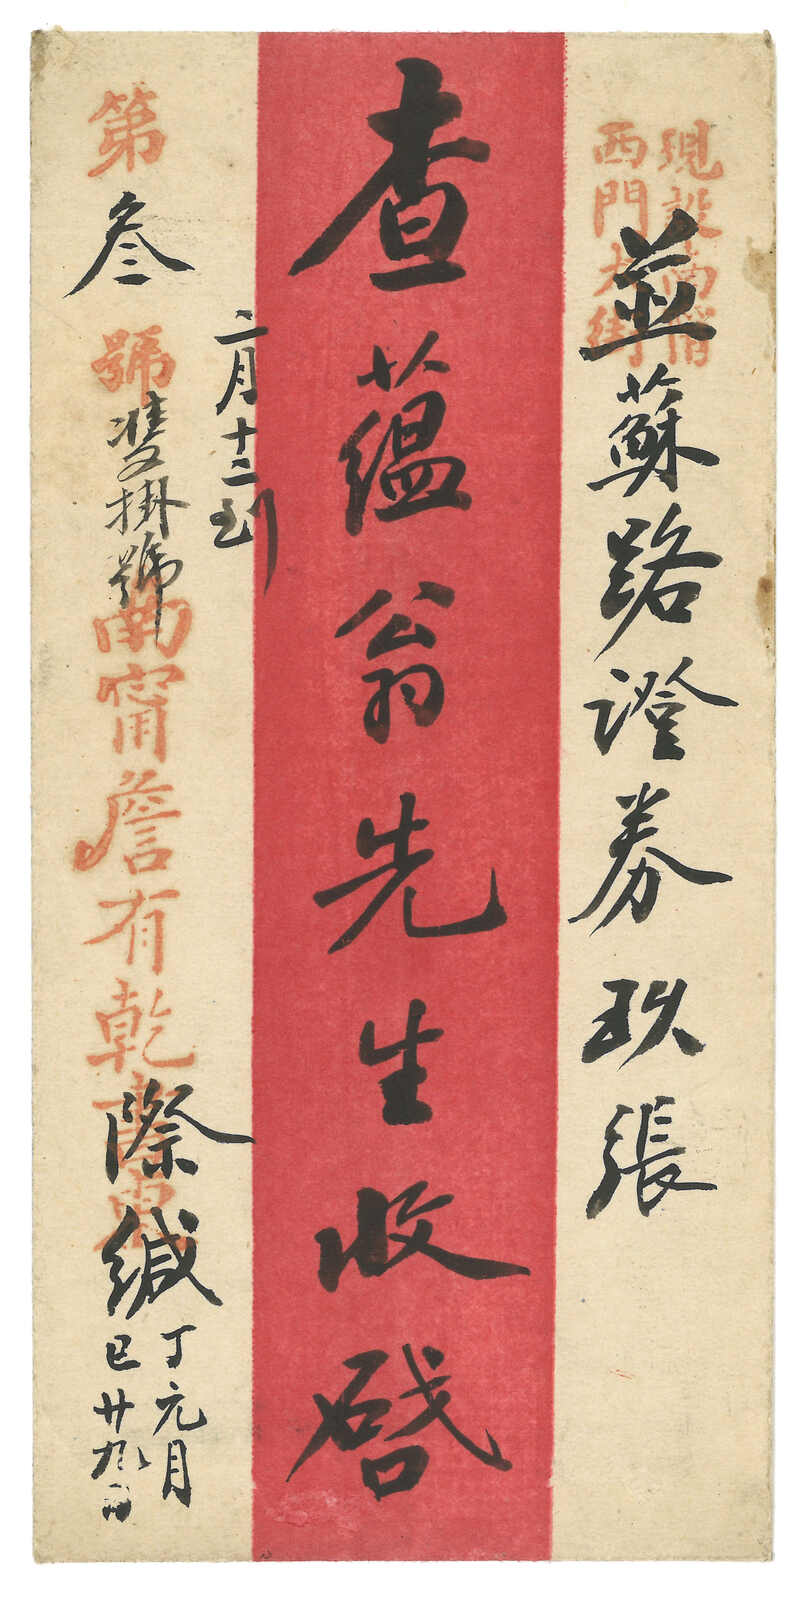 現設南甯
西門大街
並蘇路證券玖張
查蘊翁先生收啓
二月十二到
第叁號
雙掛號
南甯詹有乾
際緘
丁巳元月廿九日